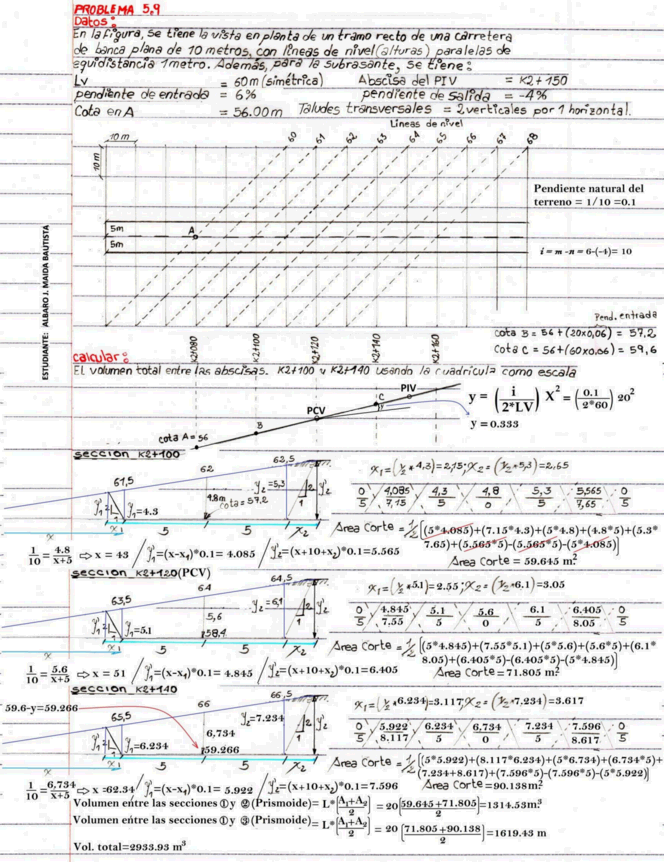 PROBLEMA 5.9
Datos:
En la figura, se tiene la vista en planta de un tramo recto de una carretera
de banca plana de 10 metros, con líneas de nivel (alturas) paralelas de
equidistancia 1 metro. Además, para la subrasante, se tiene:
Lv = 60m (simétrica) Abscisa del PIV = K2+150
pendiente de entrada = 6% pendiente de salida = -4%
Cota en A = 56.00m Taludes transversales = 2 verticales por 1 horizontal.
Líneas de nivel
10 m
60 61 62 63 64 65 66 67 68
10 m
Pendiente natural del
terreno = 1/10 =0.1
5m
A
5m
i = m -n = 6-(-4)= 10
ESTUDIANTE: ALBARO J. MAIDA BAUTISTA
K2+080 K2+100 K2+120 K2+140 K2+160
Pend. entrada
cota B = 56 + (20x0,06) = 57,2
Cota C = 56+(60x0,06) = 59,6
calcular:
El volumen total entre las abscisas. K2+100 y K2+140 usando la cuadrícula como escala
PIV
C
y
PCV
B
cota A=56
y = (i/2*LV) X² = (0.1/2*60) 20²
y = 0.333
sección K2+100
61,5 62 62,5
y₁=4.3 4.8m cota=57,2 y₂=5,3
x x₁ 5 5 x₂
x₁=(½*4,3)=2,15; x₂=(½*5,3)=2,65
0/5 4,085/7,15 4,3/5 4,8/0 5,3/5 5,565/7,65 0/5
Area Corte = ½[(5*4.085)+(7.15*4.3)+(5*4.8)+(4.8*5)+(5.3*
7.65)+(5.565*5)-(5.565*5)-(5*4.085)]
Area Corte = 59.645 m²
1/10 = 4.8/x+5 ⇨ x = 43 / y'₁=(x-x₁)*0.1= 4.085 / y'₂=(x+10+x₂)*0.1=5.565
sección K2+120(PCV)
63,5 64 64,5
y₁=5.1 5,6 58.4 y₂=6,1
x x₁ 5 5 x₂
x₁=(½*5.1)=2.55; x₂=(½*6.1)=3.05
0/5 4.845/7.55 5.1/5 5.6/0 6.1/5 6.405/8.05 0/5
Area Corte = ½[(5*4.845)+(7.55*5.1)+(5*5.6)+(5.6*5)+(6.1*
8.05)+(6.405*5)-(6.405*5)-(5*4.845)]
Area Corte = 71.805 m²
1/10 = 5.6/x+5 ⇨ x = 51 / y'₁=(x-x₁)*0.1= 4.845 / y'₂=(x+10+x₂)*0.1=6.405
sección K2+140
59.6-y=59.266
65,5 66 66,5
y₁=6.234 6,734 59.266 y₂=7.234
x x₁ 5 5 x₂
x₁=(½*6.234)=3.117; x₂=(½*7,234)=3.617
0/5 5.922/8.117 6.234/5 6,734/0 7.234/5 7.596/8.617 0/5
Area Corte = ½[(5*5.922)+(8.117*6.234)+(5*6.734)+(6.734*5)+
(7.234+8.617)+(7.596*5)-(7.596*5)-(5*5.922)]
Area Corte=90.138m²
1/10 = 6,734/x+5 ⇨ x =62.34 / y'₁=(x-x₁)*0.1= 5.922 / y'₂=(x+10+x₂)*0.1=7.596
Volumen entre las secciones ① y ② (Prismoide)= L*[A₁+A₂/2] = 20[59.645+71.805/2]=1314.53m³
Volumen entre las secciones ① y ③ (Prismoide)= L*[A₁+A₂/2] = 20[71.805+90.138/2]=1619.43 m
Vol. total=2933.93 m³